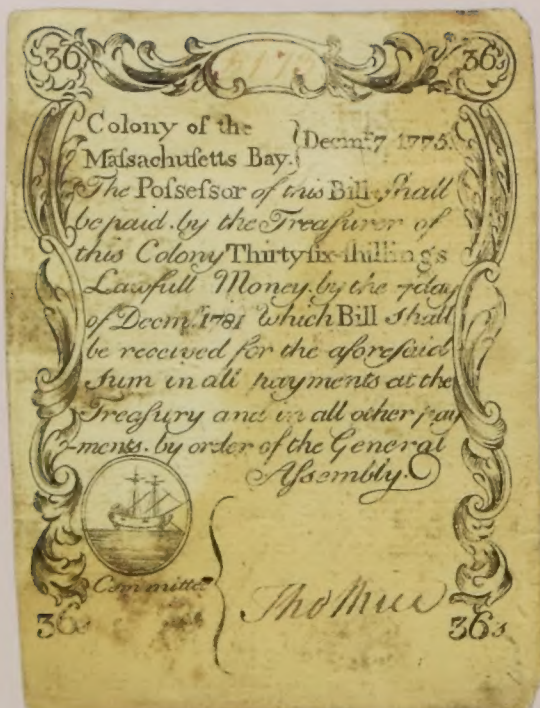 36 36
Colony of the
Maſsachuſetts Bay. } Decmr. 7 1775.
The Poſseſsor of this Bill ſhall
be paid. by the Treaſurer of
this Colony Thirty ſix ſhillings
Lawfull Money. by the 7 day
of Decmr. 1781 which Bill ſhall
be received for the aforeſaid
ſum in all payments at the
Treaſury and in all other pay
-ments. by order of the General
Aſsembly.
Committee
36s 36s